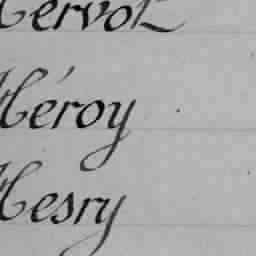 Hervot
Héroy
Hesry